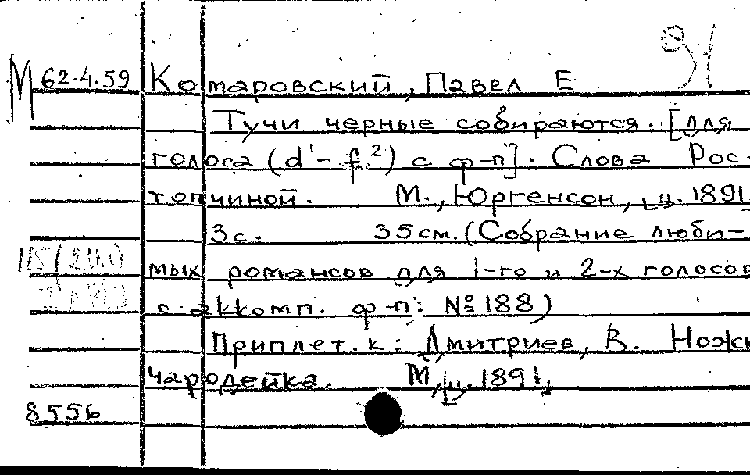 М 62-4.59 Комаровский, Павел Е
Тучи черные собираются. [Для
голоса (d¹-f²) с ф-п]. Слова Рос-
топчиной. М., Юргенсон, ц. 1891.
3с. 35см. (Собрание люби-
мых романсов для 1-го и 2-х голосов
с аккомп. ф-п: № 188)
Приплет. к: Дмитриев, В. Нож
Чародейка. М, ц. 1891,
8556